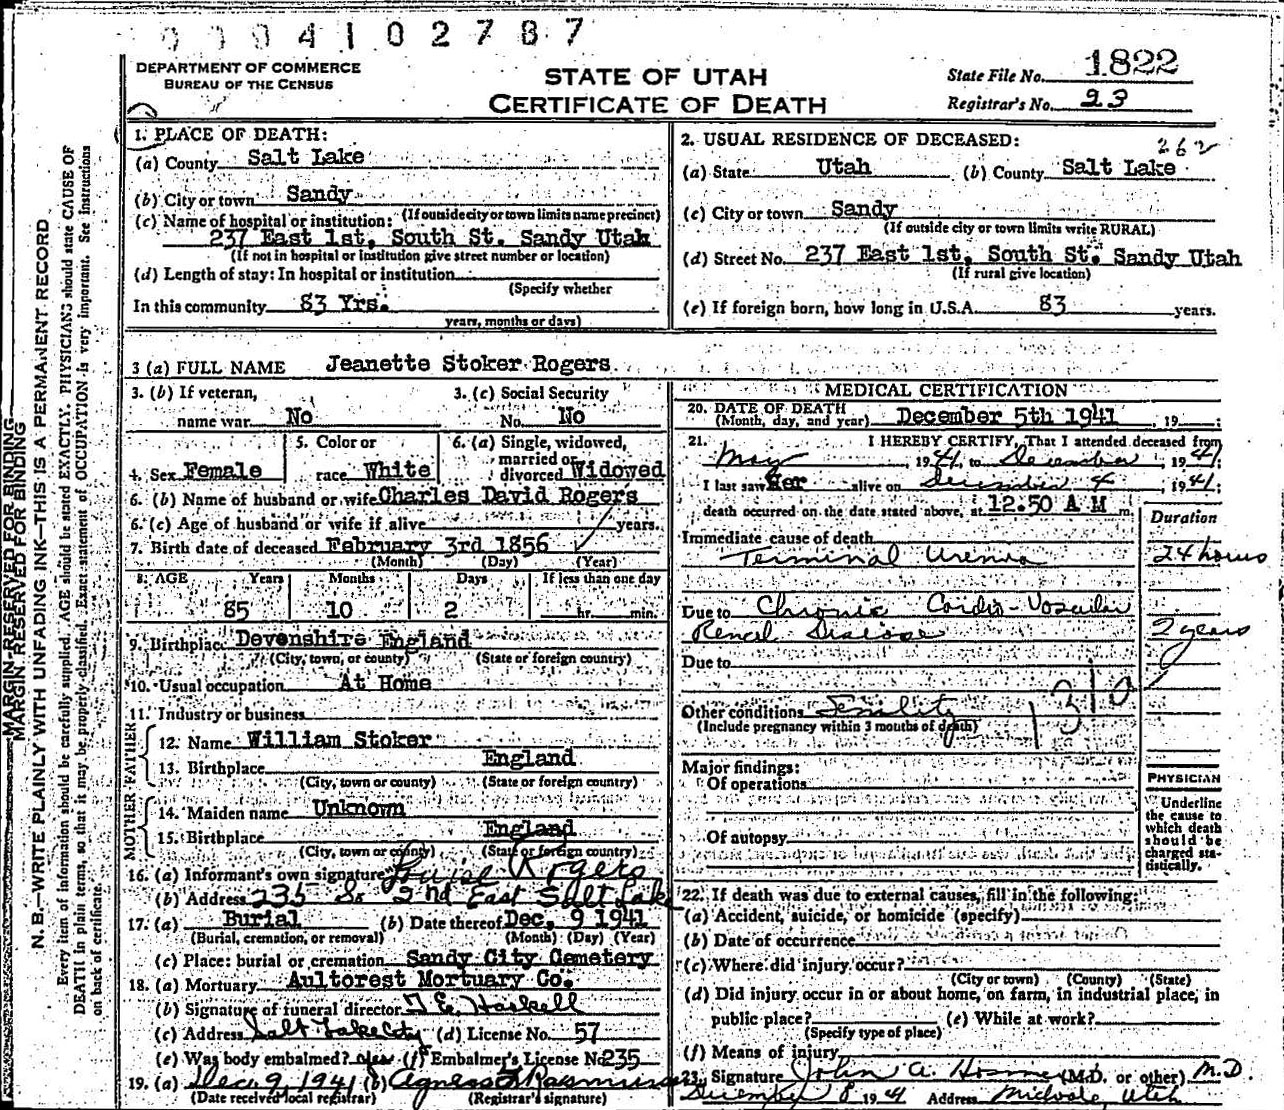 0004102787
DEPARTMENT OF COMMERCE
BUREAU OF THE CENSUS
STATE OF UTAH
CERTIFICATE OF DEATH
State File No. 1822
Registrar's No. 23
1. PLACE OF DEATH:
(a) County Salt Lake
(b) City or town Sandy
(If outside city or town limits name precinct)
(c) Name of hospital or institution:
237 East 1st, South St. Sandy Utah
(If not in hospital or institution give street number or location)
(d) Length of stay: In hospital or institution
(Specify whether
In this community 83 Yrs.
years, months or days)
2. USUAL RESIDENCE OF DECEASED: 262
(a) State Utah (b) County Salt Lake
(c) City or town Sandy
(If outside city or town limits write RURAL)
(d) Street No. 237 East 1st, South St. Sandy Utah
(If rural give location)
(e) If foreign born, how long in U.S.A. 83 years.
3 (a) FULL NAME Jeanette Stoker Rogers
3. (b) If veteran,
name war. No
3. (c) Social Security
No. No
4. Sex Female
5. Color or
race White
6. (a) Single, widowed,
married or
divorced Widowed
6. (b) Name of husband or wife Charles David Rogers
6. (c) Age of husband or wife if alive years.
7. Birth date of deceased February 3rd 1856
(Month) (Day) (Year)
8. AGE Years Months Days If less than one day
85 10 2 hr. min.
9. Birthplace Devonshire England
(City, town, or county) (State or foreign country)
10. Usual occupation At Home
11. Industry or business
FATHER
12. Name William Stoker
13. Birthplace England
(City, town or county) (State or foreign country)
MOTHER
14. Maiden name Unknown
15. Birthplace England
(City, town or county) (State or foreign country)
16. (a) Informant's own signature Louise Rogers
(b) Address 235 So 2nd East Salt Lake
17. (a) Burial (b) Date thereof Dec. 9 1941
(Burial, cremation, or removal) (Month) (Day) (Year)
(c) Place: burial or cremation Sandy City Cemetery
18. (a) Mortuary Aultorest Mortuary Co.
(b) Signature of funeral director T E Haskell
(c) Address Salt Lake City (d) License No. 57
(e) Was body embalmed? yes (f) Embalmer's License No. 235
19. (a) Dec. 9, 1941 (b) Agness Rasmussen
(Date received local registrar) (Registrar's signature)
MEDICAL CERTIFICATION
20. DATE OF DEATH
(Month, day, and year) December 5th 1941, 19
21. I HEREBY CERTIFY, That I attended deceased from
May, 1941, to December, 1941;
I last saw her alive on December 4, 1941;
death occurred on the date stated above, at 12.50 A M m.
Duration
Immediate cause of death
Terminal Uremia 24 hours
Due to Chronic Cardio-Vascular
Renal Disease 2 years
Due to
Other conditions Senility
(Include pregnancy within 3 months of death)
131a
Major findings:
Of operations
Of autopsy
PHYSICIAN
Underline
the cause to
which death
should be
charged sta-
tistically.
22. If death was due to external causes, fill in the following:
(a) Accident, suicide, or homicide (specify)
(b) Date of occurrence
(c) Where did injury occur?
(City or town) (County) (State)
(d) Did injury occur in or about home, on farm, in industrial place, in
public place? (e) While at work?
(Specify type of place)
(f) Means of injury
23. Signature John A. (M.D. or other) M.D.
December 8 1941 Address Midvale, Utah
MARGIN RESERVED FOR BINDING
MARGIN RESERVED FOR BINDING
N. B.—WRITE PLAINLY WITH UNFADING INK—THIS IS A PERMANENT RECORD
Every item of information should be carefully supplied. AGE should be stated EXACTLY. PHYSICIANS should state CAUSE OF
DEATH in plain terms, so that it may be properly classified. Exact statement of OCCUPATION is very important. See instructions
on back of certificate.